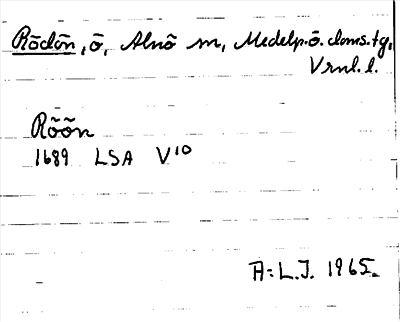 Rödön, ö, Alnö sn, Medelp. ö. doms. tg,
Vrnl. l.
Röön
1689 LSA V10
A: L.J. 1965.